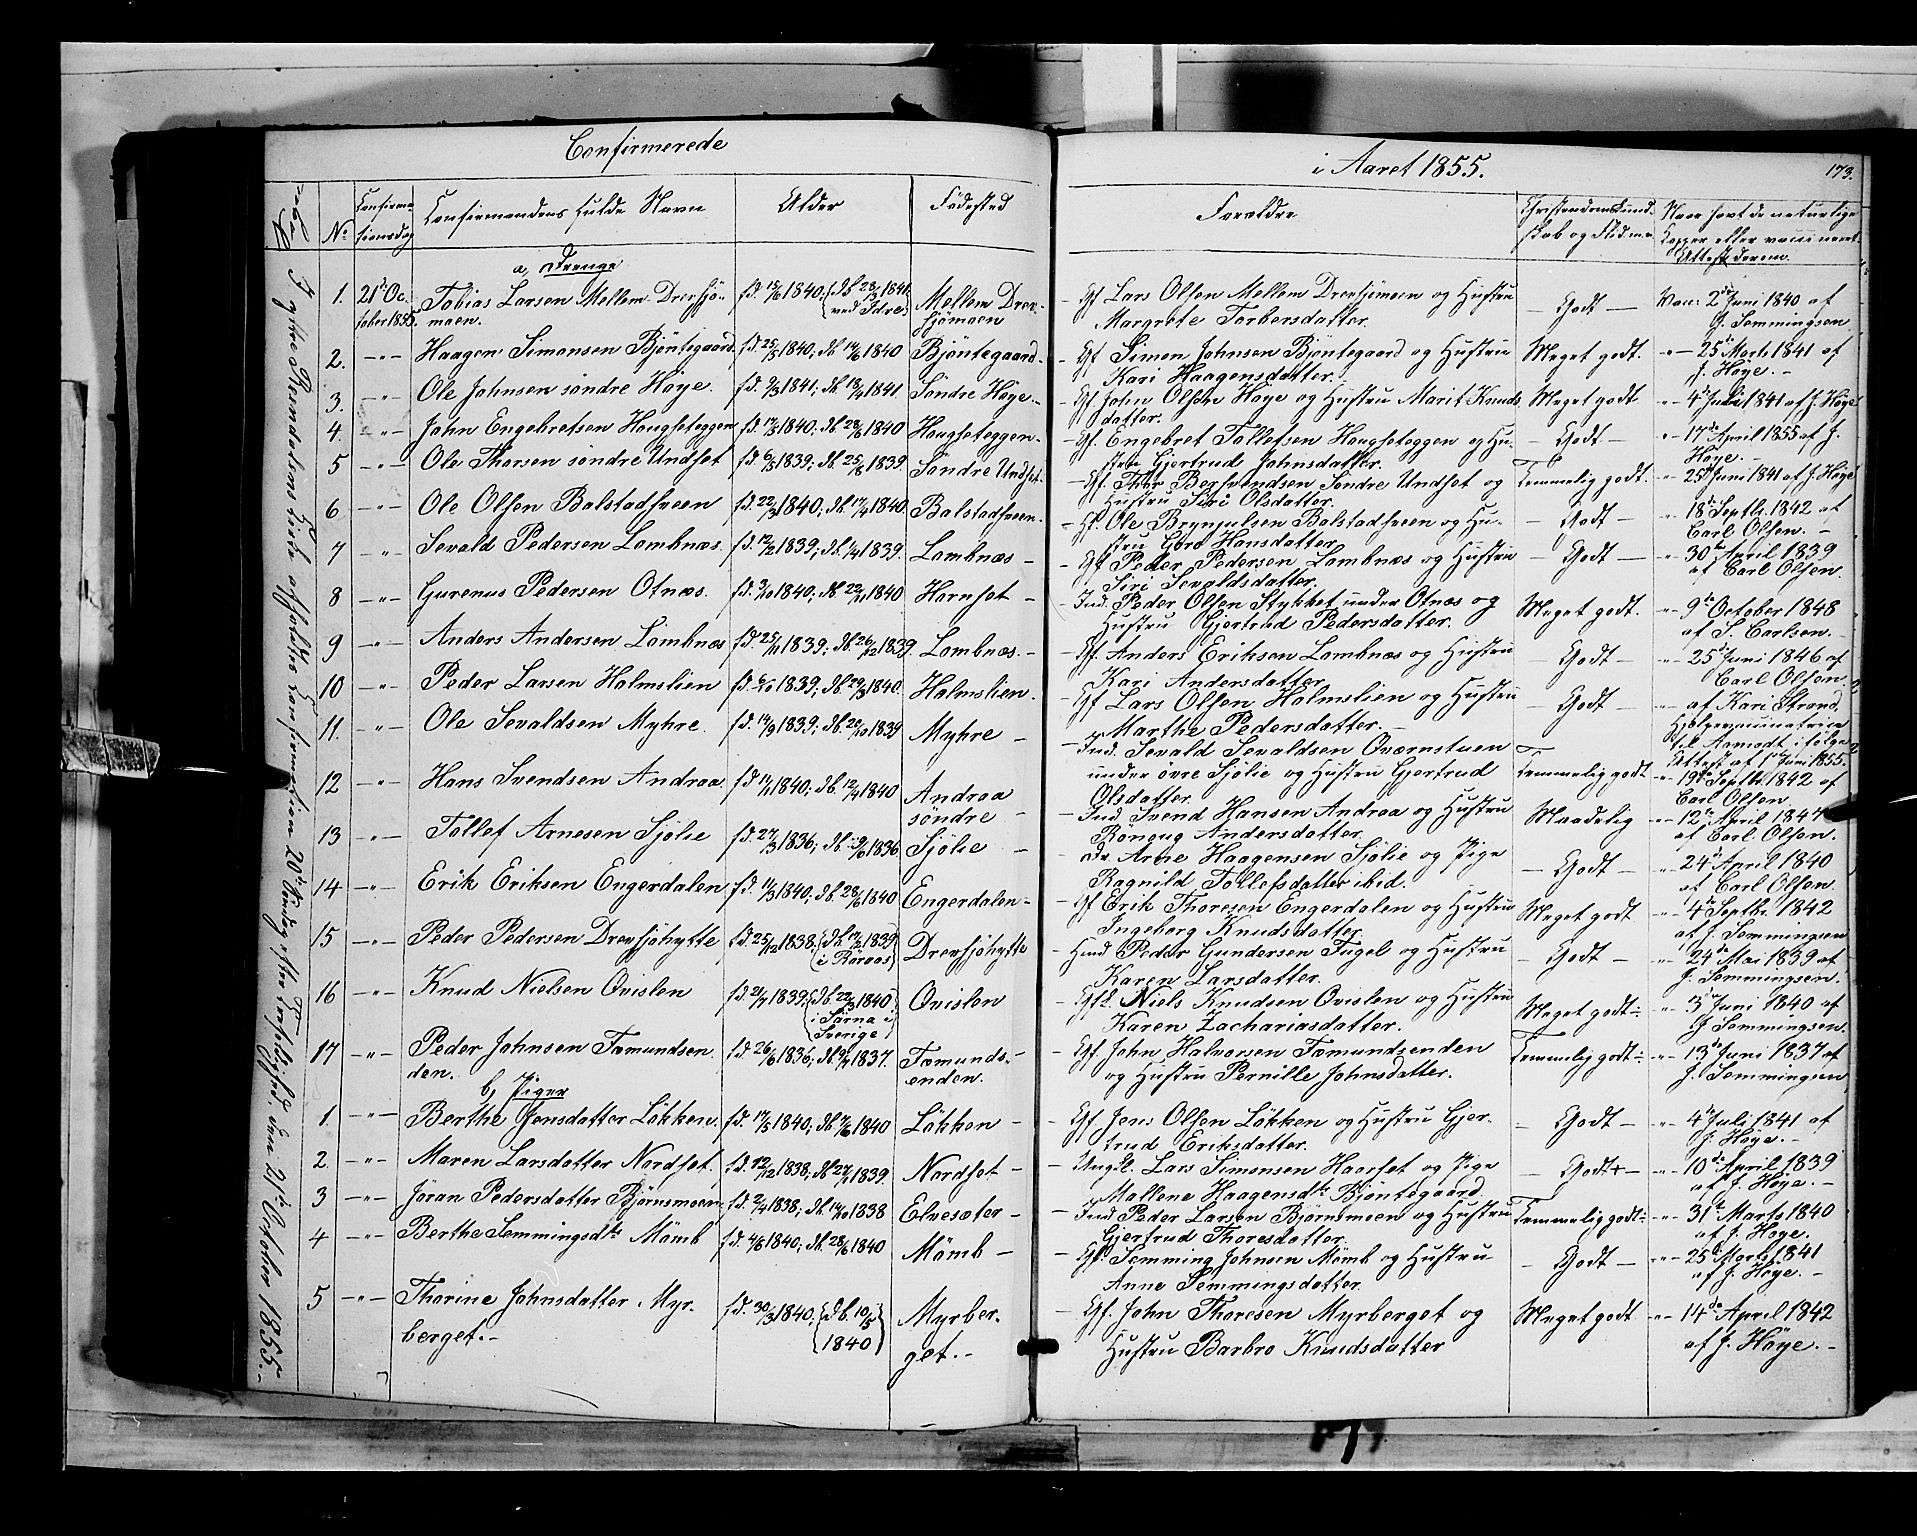 Confirmerede
i Aaret 1855.
173.
No
Confirma-
tionsdag
Confirmandens fulde Navn
Alder
Födested
Forældre
Christendomskund-
skab og Flid m.v.
Naar havt de naturlige
Kopper eller vaccineret.
Attest derom.
I ytre Rendalens Kirke afholdtes Confirmation 20de Söndag efter Trefoldighed den 21de October 1855.-
a, Drenge
1. 21de Oc-
tober 1855. Tobias Larsen Mellem Drevsjö-
moen. fd. 15/6 1840; {db. 28/3 1841
ved Idre} Mellem Drev-
sjömoen - Gf Lars Olsen Mellem Drevsjömoen og Hustru
Margrete Torbersdatter. - Godt - Vacc. 2de Juni 1840 af
J. Semmingsen.
2. -"- Haagen Simonsen Bjöntegaard fd. 25/5 1840; db. 14/6 1840 Bjöntegaard. - Gf Simon Johnsen Bjöntegaard og Hustru
Kari Haagensdatter. Meget godt. "- 25de Marts 1841 af
J. Höye. -
3. -"- Ole Johnsen söndre Höye. fd. 9/3 1841; db. 18/4 1841. Söndre Höye. - Gf John Olsen Höye og Hustru Marit Knuds-
datter. Meget godt "- 4de Juli 1841 af J. Höye
4. -"- John Engebretsen Haugseteggen fd. 17/5 1840; db. 28/6 1840 Haugseteggen - Gf. Engebret Tollefsen Haugseteggen og Hu-
stru Gjertrud Johnsdatter. - Godt - "- 17de April 1855 af J.
Höye. -
5 -"- Ole Thorsen söndre Undset fd. 6/5 1839; db. 25/8 1839. Söndre Undset. - Gf. Thor Bersvendsen Söndre Undset og
Hustru Siri Olsdatter. Temmelig godt. "- 25de Juni 1841 af J. Höye
6 -"- Ole Olsen Balstadsveen fd. 22/3 1840; db. 17/4 1840. Balstadsveen. - Hf. Ole Brynjulsen Balstadsveen og Hu-
stru Goro Hansdatter. - Godt - "- 18de Septbr. 1842 af
Carl Olsen. -
7 -"- Sevald Pedersen Lombnæs. fd. 12/2 1839; db. 1/4 1839. Lombnæs - - Gf Peder Pedersen Lombnæs og Hustru
Siri Sevaldsdatter. - Godt - "- 30te April 1839
af Carl Olsen.
8 -"- Gurenus Pedersen Otnæs. fd. 3/10 1840; db. 22/11 1840 Harnset - - Ind. Peder Olsen Stykket under Otnæs og
Hustru Gjertrud Pedersdatter. Meget godt. "- 9de October 1848
af S. Carlsen. -
9 -"- Anders Andersen Lombnæs fd. 25/11 1839; db. 26/12 1839. Lombnæs. - - Gf. Anders Eriksen Lombnæs og Hustru
Kari Andersdatter - Godt - "- 25de Juni 1846 af
Carl Olsen.
10 -"- Peder Larsen Holmslien fd. 6/10 1839; db. 29/3 1840. Holmslien. - Gf Lars Olsen Holmslien og Hustru
Marthe Pedersdatter. - - Godt - "- af Kari Strand,
Hjelpevaccinatrice
til Aamodt i følge
Attest af 1ste Juni 1855.
11. -"- Ole Sevaldsen Myhre. fd. 14/9 1839; db. 20/10 1839 Myhre - - Ind. Sevald Sevaldsen Qværnstuen
under övre Sjölie og Hustru Gjertrud
Olsdatter. Temmelig godt "- 19de Septbr. 1842 af
Carl Olsen.
12 -"- Hans Svendsen Andraa. fd. 17/1 1840; db. 12/4 1840 Andraa
söndre - - Ind. Svend Hansen Andraa og Hustru
Roneug Andersdatter. Maadelig "- 12te April 1847
af Carl Olsen.
13 -"- Tollef Arnesen Sjölie fd. 27/3 1836; db. 19/6 1836 Sjölie - - Arne Haagensen Sjölie og Pige
Ragnild Tollefsdatter ibid. - Godt - "- 24de April 1840
af Carl Olsen.
14 -"- Erik Eriksen Engerdalen fd. 11/3 1840; db. 28/6 1840 Engerdalen - - Gf Erik Thoresen Engerdalen og Hustru
Ingeborg Knudsdatter. Meget godt "- 4de Septbr. 1842
af J. Semmingsen
15 -"- Peder Pedersen Drevsjöhytte fd. 25/12 1838. {db. 17/2 1839
i Röraas} Drevsjöhytte - Hmd Peder Gundersen Fugel og Hustru
Karen Larsdatter. - Godt - "- 24de Mai 1839 af
J. Semmingsen.
16 -"- Knud Nielsen Qvislen fd. 21/7 1839. {db. 22/3 1840
i Särna i
Sverige} Qvislen - Gf. Niels Knudsen Qvislen og Hustru
Karen Zachariasdatter. Meget godt "- 3de Juni 1840 af
J. Semmingsen.
17 -"- Peder Johnsen Fæmundsen-
den. fd. 26/6 1836; db. 9/7 1837. Fæmunds-
enden. - Gf. John Halvorsen Fæmundsenden
og Hustru Pernille Johnsdatter. Temmelig godt "- 13de Juni 1837 af
J. Semmingsen
b, Piger
1. -"- Berthe Jensdatter Lökken. fd. 17/5 1840; db. 7/6 1840 Lökken - - Gf Jens Olsen Lökken og Hustru Gjer-
trud Eriksdatter. - Godt - "- 4de Juli 1841 af
J. Höye. -
2. -"- Maren Larsdatter Nordset. fd. 12/12 1838; db. 27/1 1839. Nordset - - Ungk. Lars Simonsen Haarset og Pige
Mallene Haagensdtr Bjöntegaard. - Godt + - "- 10de April 1839
af J. Höye. -
3 -"- Jöran Pedersdatter Björnsmoen fd. 2/4 1838; db. 14/10 1838 Elvesæter - - Ind Peder Larsen Björnsmoen og Hustru
Gjertrud Thoresdatter. Temmelig godt "- 31te Marts 1840
af J. Höye.
4 -"- Berthe Semmingsdtr Mömb fd. 4/6 1840; db. 28/6 1840 Mömb - - Gf. Semming Johnsen Mömb og Hustru
Anne Semmingsdatter. - Godt - "- 25de Marts 1841
af J. Höye. -
5 -"- Thorine Johnsdatter Myr-
berget. - fd. 30/3 1840. {db. 10/5
1840} Myrber-
get. - - Gf. John Thoresen Myrberget og
Hustru Barbro Knudsdatter Meget godt "- 14de April 1842
af J. Höye. -